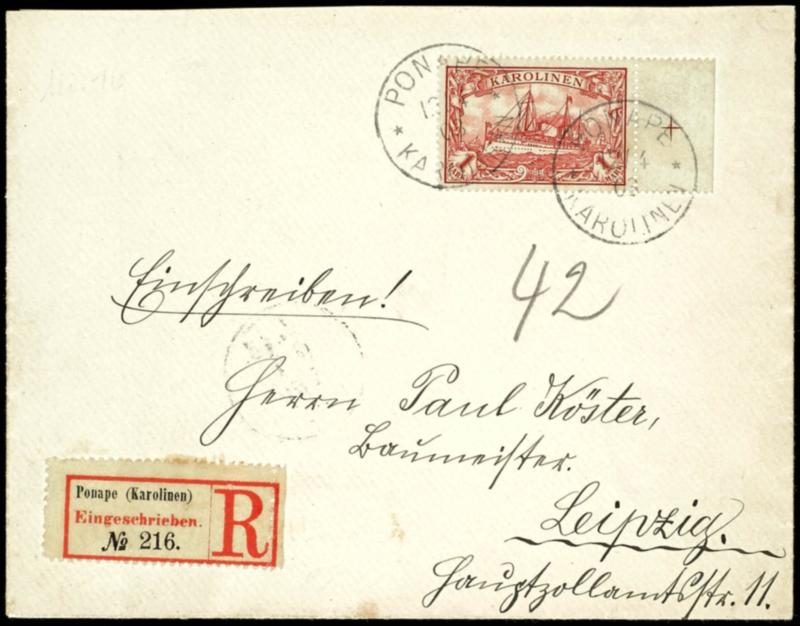 PONAPE
KAROLINEN
1 MARK 1 MARK
PONAPE
4
KAROLINEN
Einschreiben!
42
Herrn Paul Köster,
Baumeister.
Leipzig.
Hauptzollamtsstr. 11.
Ponape (Karolinen)
Eingeschrieben.
№ 216.
R